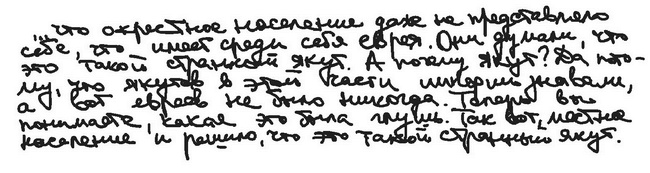 ...что окрестное население даже не представляло
себе, что имеет среди себя еврея. Они думали, что
это такой странный якут. А почему якут? Да пото-
му, что якутов в этой части империи знавали,
а вот евреев не было никогда. Теперь вы
понимаете, какая это была глушь. Так вот, местное
население и решило, что это такой странный якут.